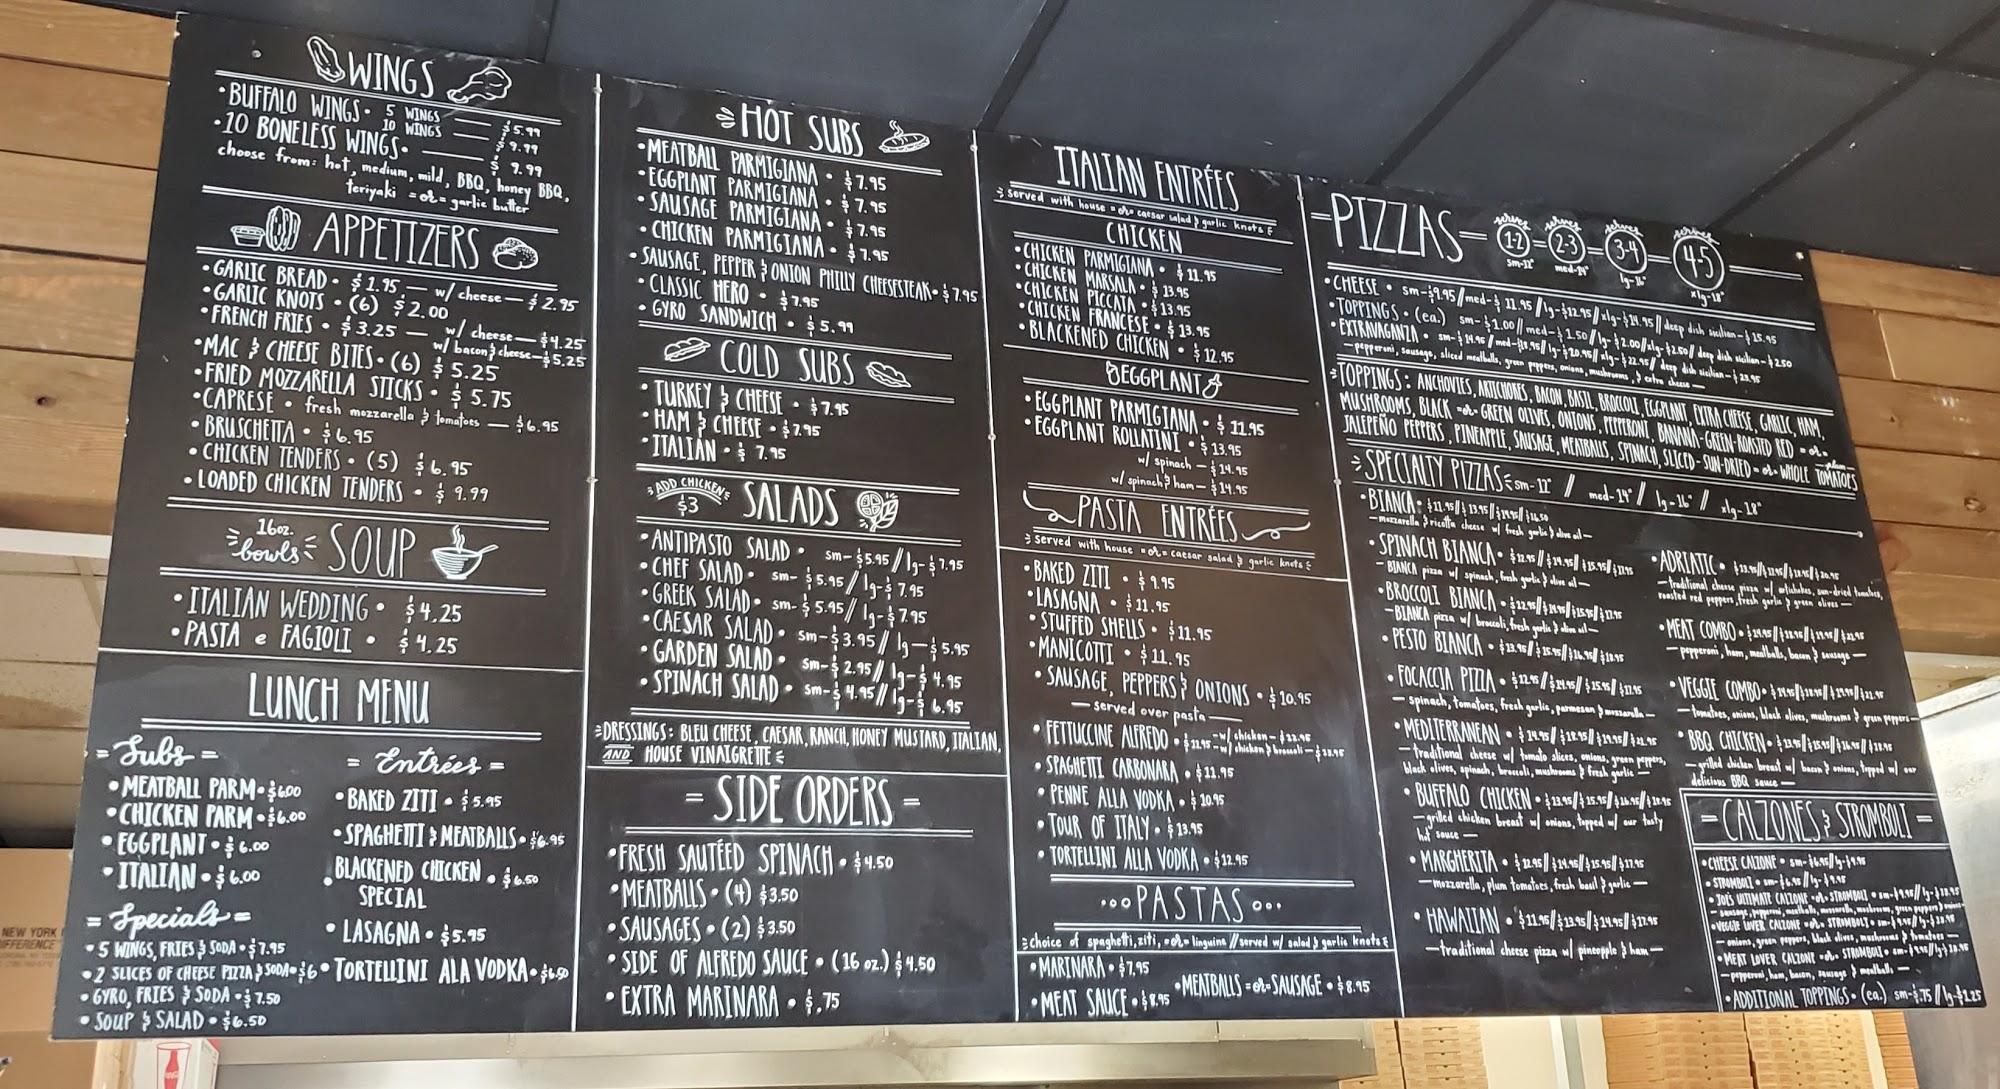 WINGS
• BUFFALO WINGS • 5 WINGS — $5.99
10 WINGS — $9.99
• 10 BONELESS WINGS • — $9.99
choose from: hot, medium, mild, BBQ, honey BBQ,
teriyaki =or= garlic butter
APPETIZERS
• GARLIC BREAD • $1.95 — w/ cheese — $2.95
• GARLIC KNOTS • (6) $2.00
• FRENCH FRIES • $3.25 — w/ cheese — $4.25
w/ bacon & cheese — $5.25
• MAC & CHEESE BITES • (6) $5.25
• FRIED MOZZARELLA STICKS • $5.75
• CAPRESE • fresh mozzarella & tomatoes — $6.95
• BRUSCHETTA • $6.95
• CHICKEN TENDERS • (5) $6.95
• LOADED CHICKEN TENDERS • $9.99
16oz. bowls SOUP
• ITALIAN WEDDING • $4.25
• PASTA e FAGIOLI • $4.25
LUNCH MENU
= Subs =
• MEATBALL PARM • $6.00
• CHICKEN PARM • $6.00
• EGGPLANT • $6.00
• ITALIAN • $6.00
= Specials =
• 5 WINGS, FRIES & SODA • $7.95
• 2 SLICES OF CHEESE PIZZA & SODA • $6
• GYRO, FRIES & SODA • $7.50
• SOUP & SALAD • $6.50
= Entrées =
• BAKED ZITI • $5.95
• SPAGHETTI & MEATBALLS • $6.95
• BLACKENED CHICKEN SPECIAL • $6.50
• LASAGNA • $5.95
• TORTELLINI ALA VODKA • $6.50
HOT SUBS
• MEATBALL PARMIGIANA • $7.95
• EGGPLANT PARMIGIANA • $7.95
• SAUSAGE PARMIGIANA • $7.95
• CHICKEN PARMIGIANA • $7.95
• SAUSAGE, PEPPER & ONION PHILLY CHEESESTEAK • $7.95
• CLASSIC HERO • $7.95
• GYRO SANDWICH • $5.99
COLD SUBS
• TURKEY & CHEESE • $7.95
• HAM & CHEESE • $7.95
• ITALIAN • $7.95
ADD CHICKEN $3 SALADS
• ANTIPASTO SALAD • sm- $5.95 // lg- $7.95
• CHEF SALAD • sm- $5.95 // lg- $7.95
• GREEK SALAD • sm- $5.95 // lg- $7.95
• CAESAR SALAD • sm- $3.95 // lg- $5.95
• GARDEN SALAD • sm- $2.95 // lg- $4.95
• SPINACH SALAD • sm- $4.95 // lg- $6.95
DRESSINGS: BLEU CHEESE, CAESAR, RANCH, HONEY MUSTARD, ITALIAN,
AND HOUSE VINAIGRETTE
= SIDE ORDERS =
• FRESH SAUTÉED SPINACH • $4.50
• MEATBALLS • (4) $3.50
• SAUSAGES • (2) $3.50
• SIDE OF ALFREDO SAUCE • (16 oz.) $4.50
• EXTRA MARINARA • $.75
ITALIAN ENTRÉES
served with house =or= caesar salad & garlic knots
CHICKEN
• CHICKEN PARMIGIANA • $11.95
• CHICKEN MARSALA • $13.95
• CHICKEN PICCATA • $13.95
• CHICKEN FRANCESE • $13.95
• BLACKENED CHICKEN • $12.95
EGGPLANT
• EGGPLANT PARMIGIANA • $11.95
• EGGPLANT ROLLATINI • $13.95
w/ spinach — $14.95
w/ spinach & ham — $14.95
PASTA ENTRÉES
served with house =or= caesar salad & garlic knots
• BAKED ZITI • $9.95
• LASAGNA • $11.95
• STUFFED SHELLS • $11.95
• MANICOTTI • $11.95
• SAUSAGE, PEPPERS & ONIONS • $10.95
— served over pasta —
• FETTUCCINE ALFREDO • w/ chicken — w/ chicken & broccoli —
• SPAGHETTI CARBONARA • $11.95
• PENNE ALLA VODKA • $10.95
• TOUR OF ITALY • $13.95
• TORTELLINI ALLA VODKA • $12.95
PASTAS
choice of spaghetti, ziti, =or= linguine // served w/ salad & garlic knots
• MARINARA • $7.95
• MEAT SAUCE • $8.95
• MEATBALLS =or= SAUSAGE • $8.95
PIZZAS
serves 1-2 sm-12" serves 2-3 med-14" serves 3-4 lg-16" serves 4-5 xlg-18"
• CHEESE • sm-$9.95 // med-$11.95 // lg-$12.95 // xlg-$14.95 // deep dish sicilian-$15.95
• TOPPINGS • (ea.) sm-$1.00 // med-$1.50 // lg-$2.00 // xlg-$2.50 // deep dish sicilian-$2.50
• EXTRAVAGANZA • sm-$14.95 // med-$18.95 // lg-$20.95 // xlg-$22.95 // deep dish sicilian-$23.95
— pepperoni, sausage, sliced meatballs, green peppers, onions, mushrooms, & extra cheese —
TOPPINGS: ANCHOVIES, ARTICHOKES, BACON, BASIL, BROCCOLI, EGGPLANT, EXTRA CHEESE, GARLIC, HAM,
MUSHROOMS, BLACK =or= GREEN OLIVES, ONIONS, PEPPERONI, BANANA-GREEN-ROASTED RED =or=
JALEPEÑO PEPPERS, PINEAPPLE, SAUSAGE, MEATBALLS, SPINACH, SLICED-SUN-DRIED =or= WHOLE plum TOMATOES
SPECIALTY PIZZAS sm-12" // med-14" // lg-16" // xlg-18"
• BIANCA • $11.95 // $13.95 // $14.95 // $16.50
— mozzarella & ricotta cheese w/ fresh garlic & olive oil —
• SPINACH BIANCA • $12.95 // $14.95 // $15.95 // $17.95
— BIANCA pizza w/ spinach, fresh garlic & olive oil —
• BROCCOLI BIANCA • $12.95 // $14.95 // $15.95 // $17.95
— BIANCA pizza w/ broccoli, fresh garlic & olive oil —
• PESTO BIANCA • $13.95 // $15.95 // $16.95 // $18.95
• FOCACCIA PIZZA • $12.95 // $14.95 // $15.95 // $17.95
— spinach, tomatoes, fresh garlic, parmesan & mozzarella —
• MEDITERRANEAN • $14.95 // $18.95 // $19.95 // $21.95
— traditional cheese w/ tomato slices, onions, green peppers,
black olives, spinach, broccoli, mushrooms & fresh garlic —
• BUFFALO CHICKEN • $13.95 // $15.95 // $16.95 // $18.95
— grilled chicken breast w/ onions, topped w/ our tasty
hot sauce —
• MARGHERITA • $12.95 // $14.95 // $15.95 // $17.95
— mozzarella, plum tomatoes, fresh basil & garlic —
• HAWAIIAN • $11.95 // $13.95 // $14.95 // $17.95
— traditional cheese pizza w/ pineapple & ham —
• ADRIATIC •
— traditional cheese pizza w/ artichokes, sun-dried tomatoes,
roasted red peppers, fresh garlic & green olives —
• MEAT COMBO • $14.95 // $18.95 // $19.95 // $21.95
— pepperoni, ham, meatballs, bacon & sausage —
• VEGGIE COMBO • $14.95 // $18.95 // $19.95 // $21.95
— tomatoes, onions, black olives, mushrooms & green peppers —
• BBQ CHICKEN • $13.95 // $15.95 // $16.95 // $18.95
— grilled chicken breast w/ bacon & onions, topped w/ our
delicious BBQ sauce —
= CALZONES & STROMBOLI =
• CHEESE CALZONE • sm-$6.95 // lg-$9.95
• STROMBOLI • sm-$6.95 // lg-$9.95
• JOES ULTIMATE CALZONE =or= STROMBOLI • sm-$9.95 // lg-
— sausage, pepperoni, meatballs, mozzarella, mushrooms, green peppers & onions —
• VEGGIE LOVER CALZONE =or= STROMBOLI
— onions, green peppers, black olives, mushrooms & tomatoes —
• MEAT LOVER CALZONE =or= STROMBOLI
— pepperoni, ham, bacon, sausage & meatballs —
• ADDITIONAL TOPPINGS • (ea.) sm-$.75 // lg-$1.25
NEW YORK